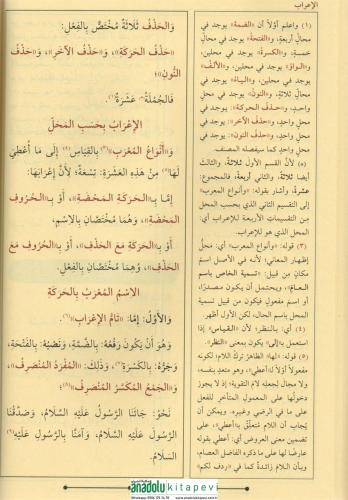 الإعراب
وَالحَذْفُ ثَلَاثَةٌ مُخْتَصٌّ بِالفِعْلِ:
«حَذْفُ الحَرَكَةِ»، وَ«حَذْفُ الآخِرِ»، وَ«حَذْفُ
النُّونِ»؛
فَالجُمْلَةُ عَشَرَةٌ(١).
الإِعْرَابُ بِحَسَبِ المَحَلِّ
وَ«أَنْوَاعُ المُعْرَبِ»(٣) بِالقِيَاسِ(٤) إِلَى مَا أُعْطِيَ
لَهَا(٥) مِنْ هَذِهِ العَشَرَةِ: تِسْعَةٌ؛ لأَنَّ إِعْرَابَهَا:
إِمَّا بِـ«الحَرَكَةِ المَحْضَةِ»، أَوْ بِـ«الحُرُوفِ
المَحْضَةِ»، وَهُمَا مُخْتَصَّانِ بِالاِسْمِ،
أَوْ بِـ«الحَرَكَةِ مَعَ الحَذْفِ»، أَوْ بِـ«الحُرُوفِ مَعَ
الحَذْفِ»، وَهُمَا مُخْتَصَّانِ بِالفِعْلِ.
الاِسْمُ المُعْرَبُ بِالحَرَكَةِ
وَالأَوَّلُ: إِمَّا: «تَامُّ الإِعْرَابِ»(٦).
وَهُوَ أَنْ يَكُونَ رَفْعُهُ: بِالضَّمَّةِ، وَنَصْبُهُ: بِالفَتْحَةِ،
وَجَرُّهُ: بِالكَسْرَةِ(٧)، وَذَلِكَ: «المُفْرَدُ المُنْصَرِفُ»،
وَ«الجَمْعُ المُكَسَّرُ المُنْصَرِفُ»(٨)؛
نَحْوُ: جَاءَنَا الرَّسُولُ عَلَيْهِ السَّلَامُ، وَصَدَّقْنَا
الرَّسُولَ عَلَيْهِ السَّلَامُ، وَآمَنَّا بِالرَّسُولِ عَلَيْهِ
السَّلَامُ.
(١) واعلم أوّلاً أن «الضمة» يوجد في
محالّ أربعةٍ، و«الفتحة» يوجد في محالّ
خمسةٍ، و«الكسرة» يوجد في محلين،
و«الواو» يوجد في محلين، و«الألف»
يوجد في محلين، و«الياء» يوجد في
محالّ ثلاثةٍ، و«النون» يوجد في محلٍ
واحدٍ، و«حذف الحركة» يوجد في
محلٍ واحدٍ، و«حذف الآخر» يوجد في
محلٍ واحدٍ، و«حذف النون» يوجد في
محلٍ واحدٍ كما سيفصله المصنف.
لأن القسم الأول ثلاثة، والثالث
أيضا ثلاثة، والثاني أربعة، فالمجموع:
عشرة، وأشار بقوله: «وأنواع المعرب»
إلى التقسيم الثاني الذي بحسب المحل
من التقسيمات الأربعة للإعراب أي:
المحل الذي هو للإعراب.
(٣) قوله: «وأنواع المعرب» أي: محلُّ
إظهار المعاني؛ لأنه في الأصل اسمُ
مكانٍ من قبيل: «تسمية الخاص باسم
العام»، ويحتمل أن يكون مصدرًا،
أو اسمَ مفعولٍ فيكون من قبيل تسمية
المحل باسم الحال، لكن الأول أظهر.
(٤) أي: بالنظر؛ لأن «القياس» إذا
استعمل بـ«إلى» يكون بمعنى «النظر».
(٥) قوله: «لها» الظاهرُ تركُ اللام؛ لكونه
مفعولاً أوّلاً لـ«أعطي»، وهو متعدٍ بنفسه،
ولا مجال لجعله لام التقوية؛ إذ لا يجوز
دخولُها على المعمول المتأخر للفعل
على ما في الرضي وغيره. ويمكن أن
يُجاب أن اللام مُتعلّقٌ بـ«أعطي»، على
تضمين معنى العروض أي: أعطي بقوله
عارضًا لها على ما ذكره الفاضل العصام،
وبأن اللام زائدةٌ كما في «ردف لكم»
anadolukitapevi